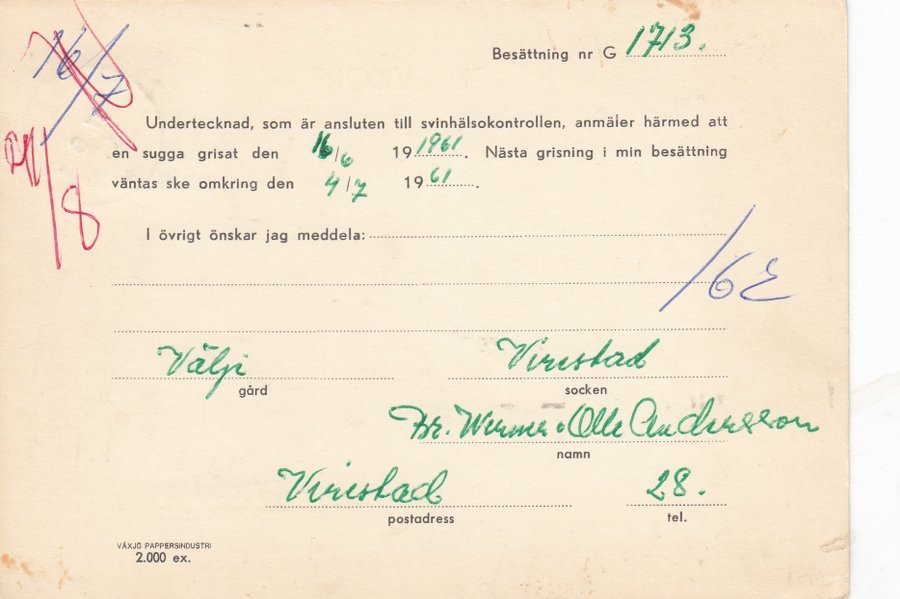 16/7
Besättning nr G 1713.
Undertecknad, som är ansluten till svinhälsokontrollen, anmäler härmed att
en sugga grisat den 16/6 19 1961. Nästa grisning i min besättning
väntas ske omkring den 4/7 19 61.
/8
I övrigt önskar jag meddela:
/62
Välje Virestad
gård socken
Br. Werner o Olle Andersson
namn
Virestad 28.
postadress tel.
VÄXJÖ PAPPERSINDUSTRI
2.000 ex.